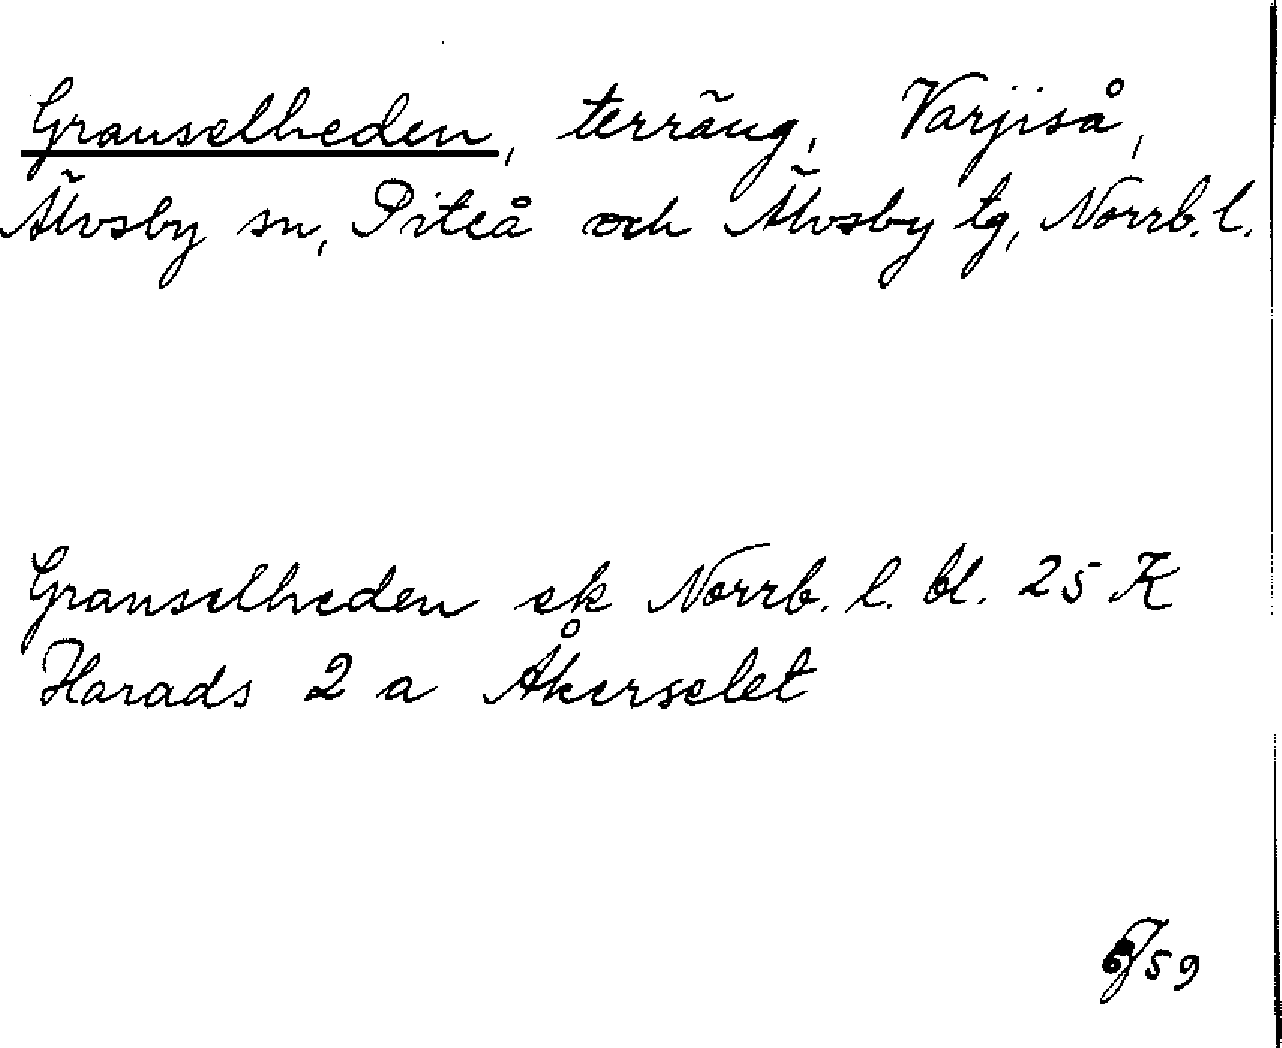 Granselheden, terräng, Varjiså,
Älvsby sn, Piteå och Älvsby tg, Norrb. l.
Granselheden ek Norrb. l. bl. 25 K
Harads 2 a Åkerselet